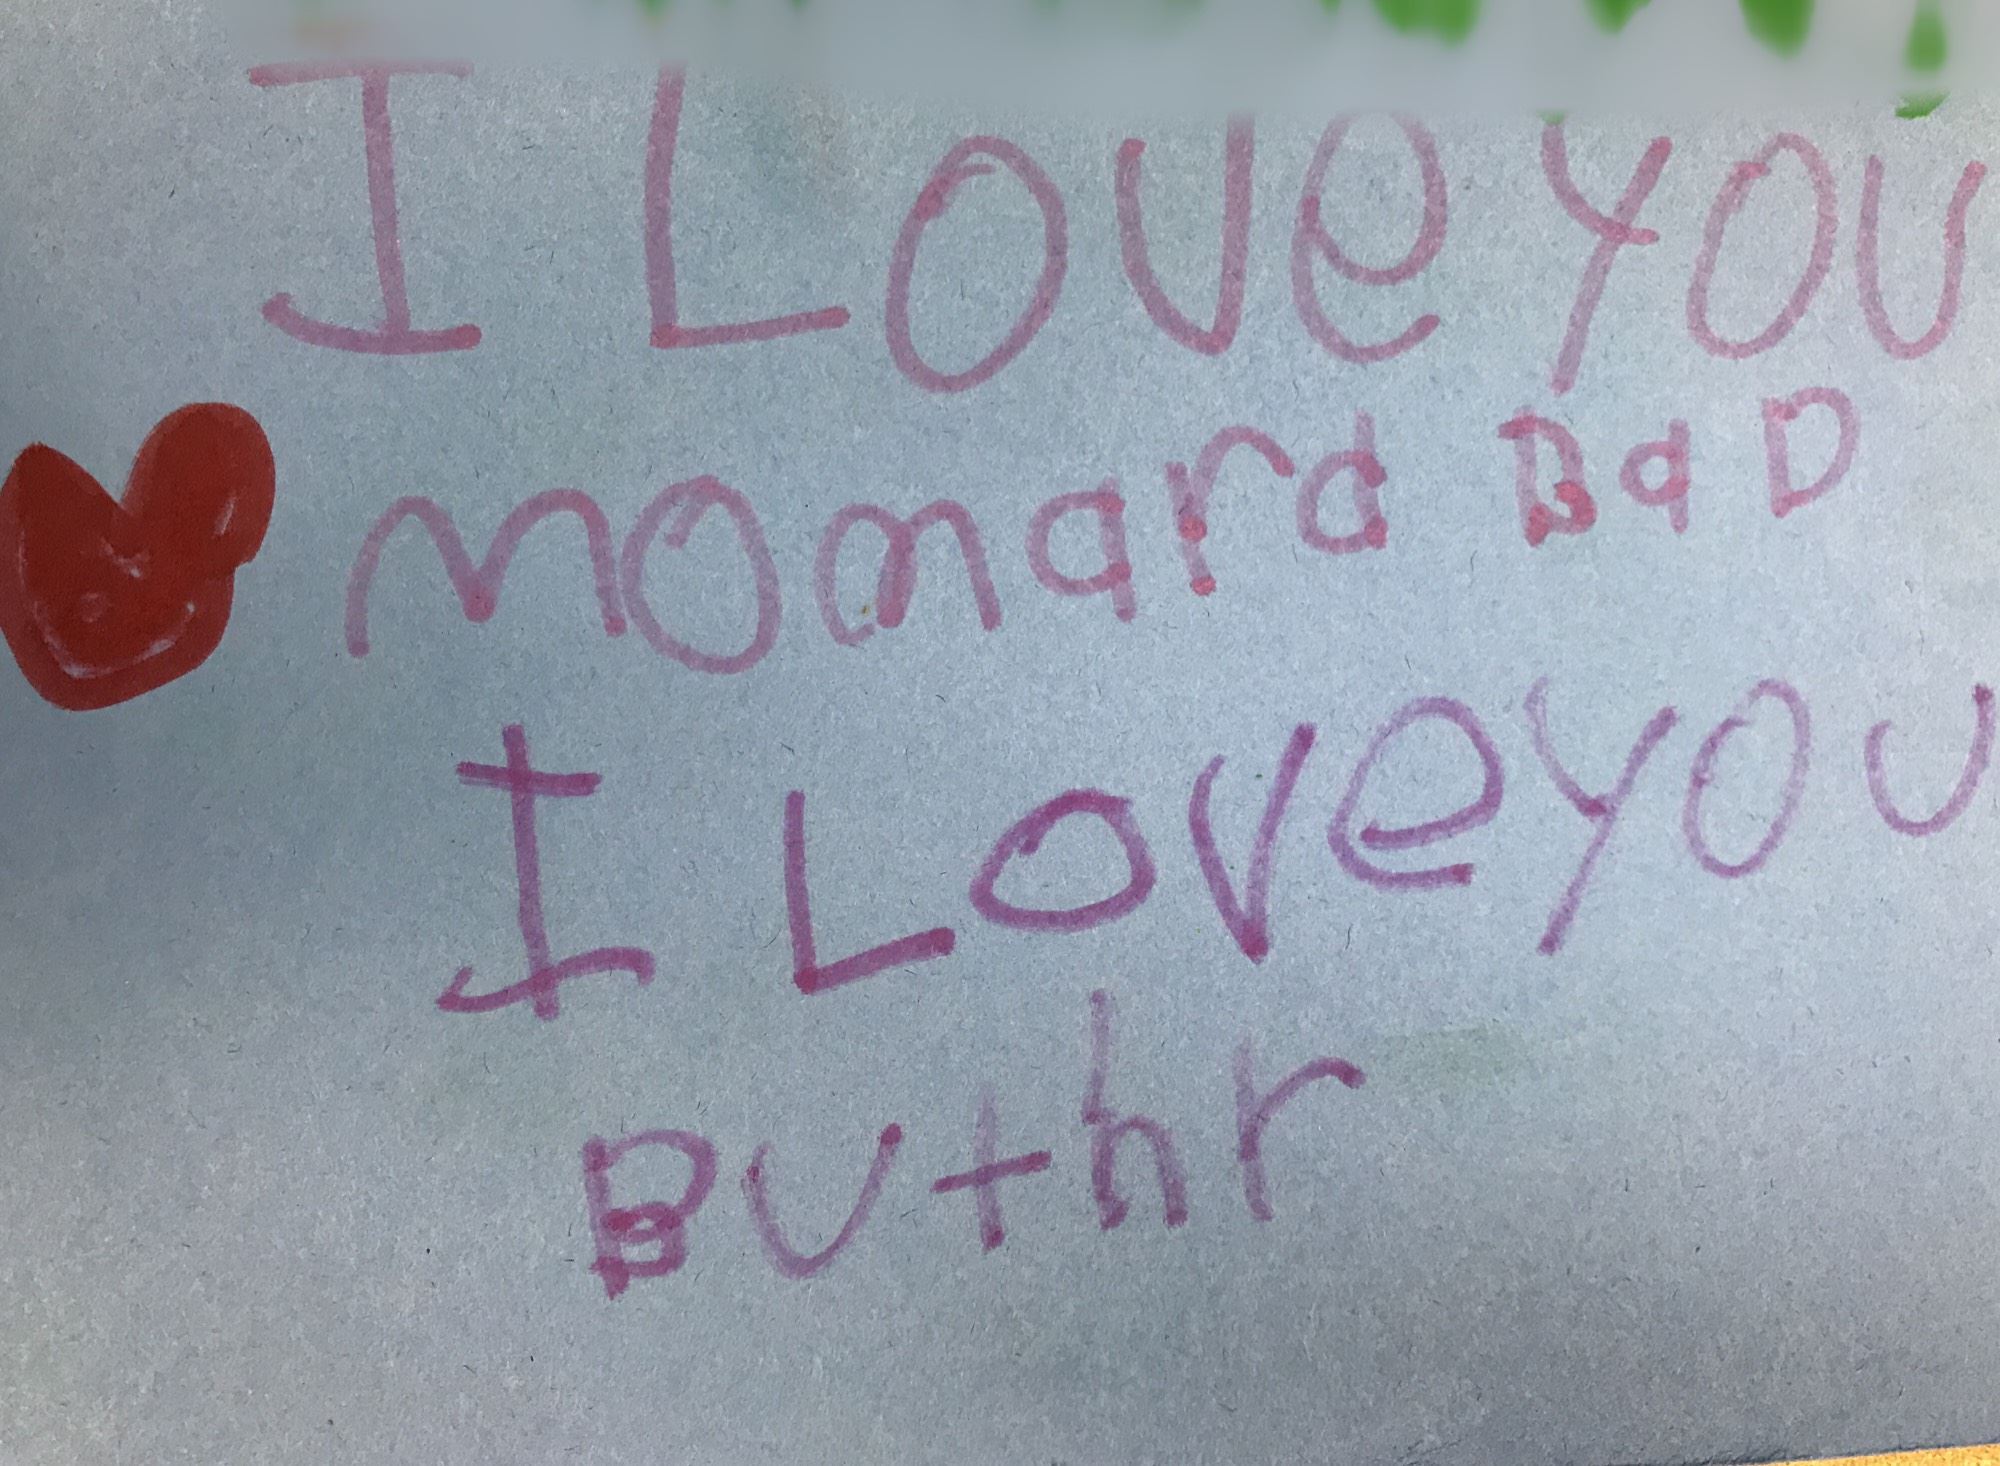 I Love you
momard BaD
I Love you
Buthr